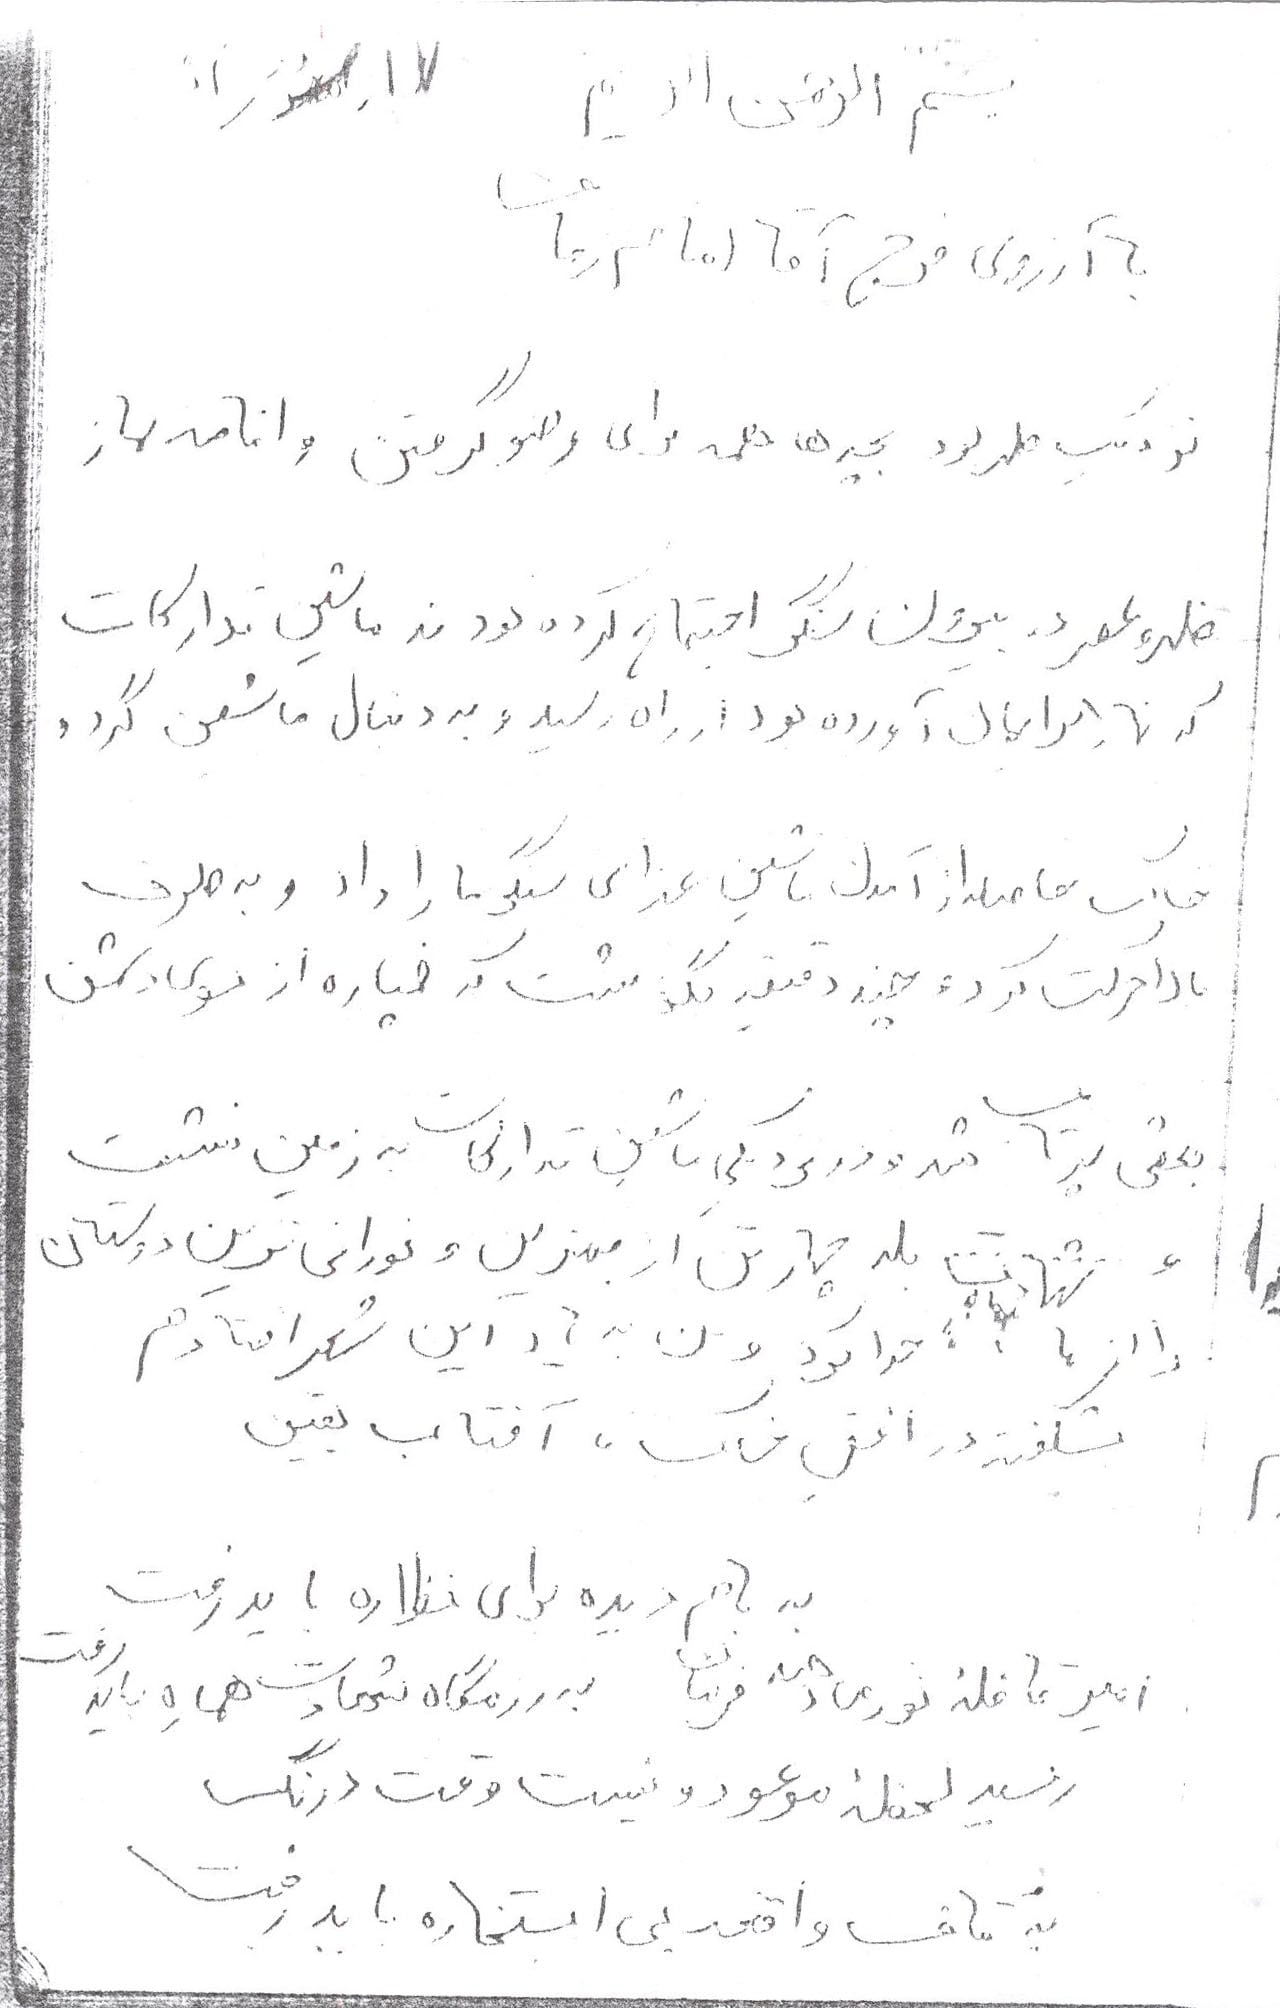 بسم الرحمن الرحیم ۱۷
با آرزوی فرج آقا امام زمان
نزدیک ظهر بود بچه ها همه برای وضو گرفتن و اقامه نماز
ظهر و عصر در بیرون سنگر اجتماع کرده بودند ماشین تدارکات
که نهار برایمان آورده بود از راه رسید و به دنبال ماشین گرد و
خاک حاصله از آمدن ماشین غذای سنگر ما را داد و به طرف
حرکت کرد و چند دقیقه نگذشت که خمپاره از سوی دشمن
بعثی پرتاب شد و در نزدیکی ماشین تدارکات به زمین نشست
و شهادت بله چهار تن از بهترین و نورانی ترین دوستان
را از ما جدا کرد و من به یاد این شعر افتادم
شکفته در افق خاک، آفتاب یقین
به بام دیده برای نظاره باید رفت
امیر قافلۀ نور می دهد فرمان به رزمگاه شهادت هماره باید رفت
رسید لحظۀ موعود و نیست وقت درنگ
به قاف واقعه بی استخاره باید رفت